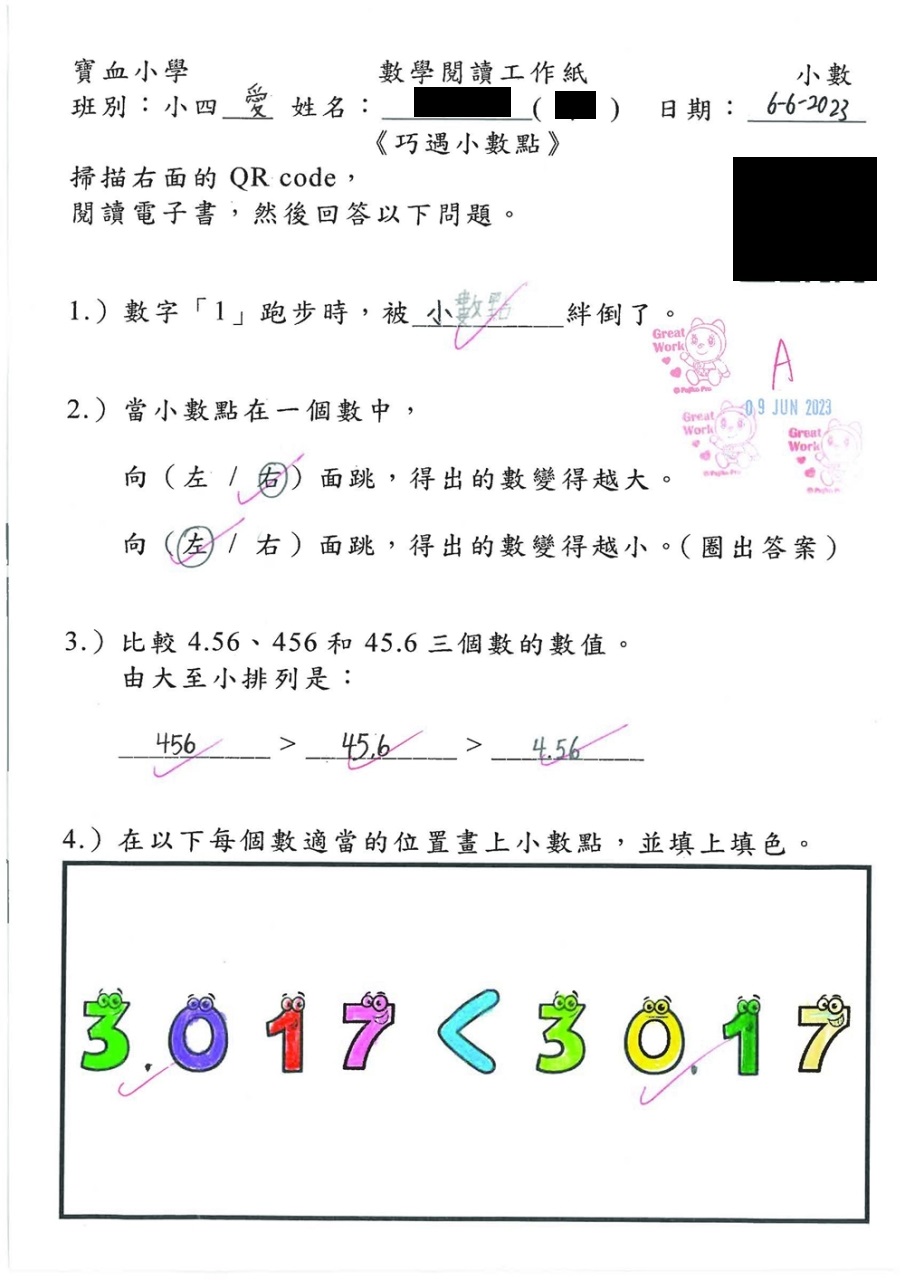 寶血小學 數學閱讀工作紙 小數
班別：小四 愛 姓名： ( ) 日期： 6-6-2023
《巧遇小數點》
掃描右面的 QR code，
閱讀電子書，然後回答以下問題。
1.) 數字「1」跑步時，被 小數點 絆倒了。
Great Work
A
2.) 當小數點在一個數中，
09 JUN 2023
Great Work
Great Work
向（左 / 右）面跳，得出的數變得越大。
向（左 / 右）面跳，得出的數變得越小。（圈出答案）
3.) 比較 4.56、456 和 45.6 三個數的數值。
由大至小排列是：
456 > 45.6 > 4.56
4.) 在以下每個數適當的位置畫上小數點，並填上填色。
3.017<30.17